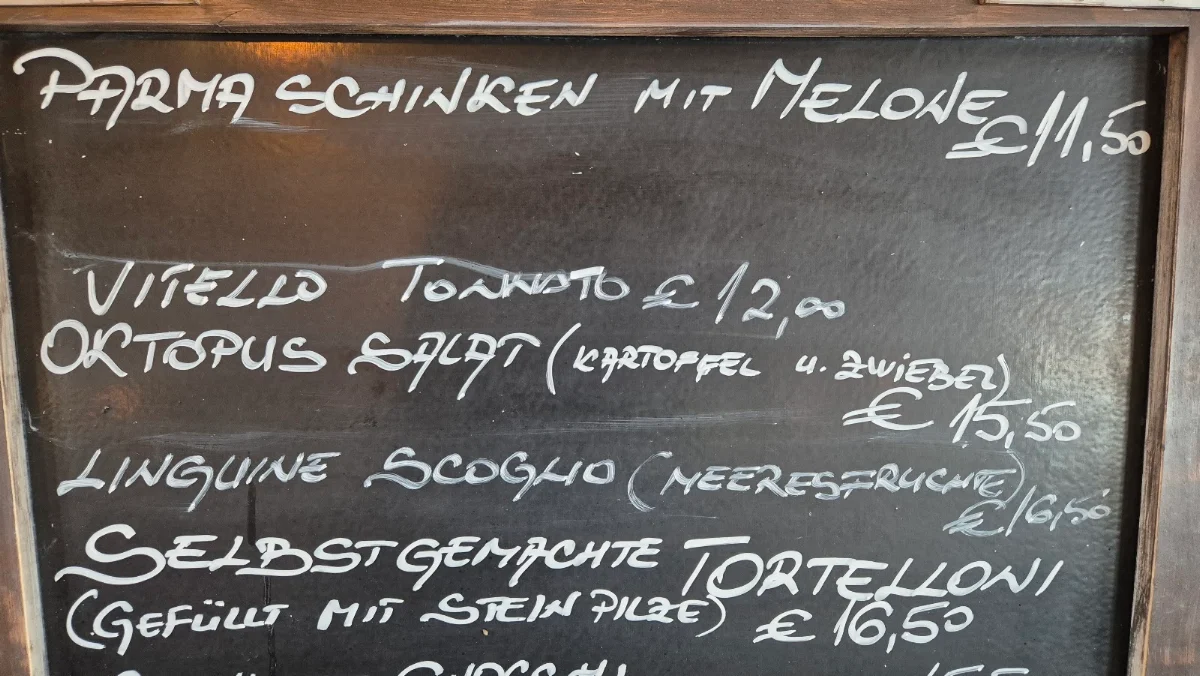 PARMA SCHINKEN MIT MELONE
€ 11,50
VITELLO TONNATO € 12,00
OKTOPUS SALAT (KARTOFFEL u. ZWIEBEL)
€ 15,50
LINGUINE SCOGLIO (MEERESFRUCHTE)
€ 16,50
SELBSTGEMACHTE TORTELLONI
(GEFÜLLT MIT STEIN PILZE) € 16,50